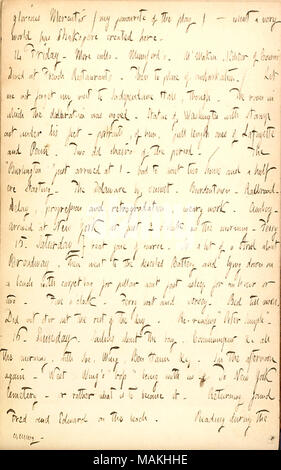 glorious Mercutio (my favourite of the play) — what a very
world has Shakspere created here.
14. Friday. More calls. Mumford's. McMakin, Editor of Courier
Dined at French Restaurant. Then to place of embarkation. / Let
me not forget we went to Independence Hall, though. The room in
which the declaration was signed. Statue of Washington with strange
out under his feet — portraits, of Penn, full length one of Lafayette
and Penn. Two old chairs of the period. / The
"Burlington" just arrived at 1 — had to wait two hours and a half
ere starting. The Delaware by sunset. Bordentown. Railroad.
Delay, progression and retrogradation, weary work. Amboy.
arrived at New York at past 2 o'clock in the morning. Ferry
15. Saturday. I kept out of course. A bit of a stroll about
Broadway, then went to the deserted Battery and lying down on
a bench with carpet bag for pillow was fast asleep for an hour or
two. Five o'clock. Ferry boat and Jersey. Bed till noon.
Did not stir out the rest of the day. Re-reading Peter Simple.
16. Sunday. Smoking about the bay, Communipaw &c all
this morning, with Joe, Whey, Bob Tavie &c. In the afternoon
again. West Wing's "trip" being with us. To New York
Cemetery — or rather what is to become it. Returning found
Fred and Edward on the beach. Reading during the
evening.
alamy
MAKHHE